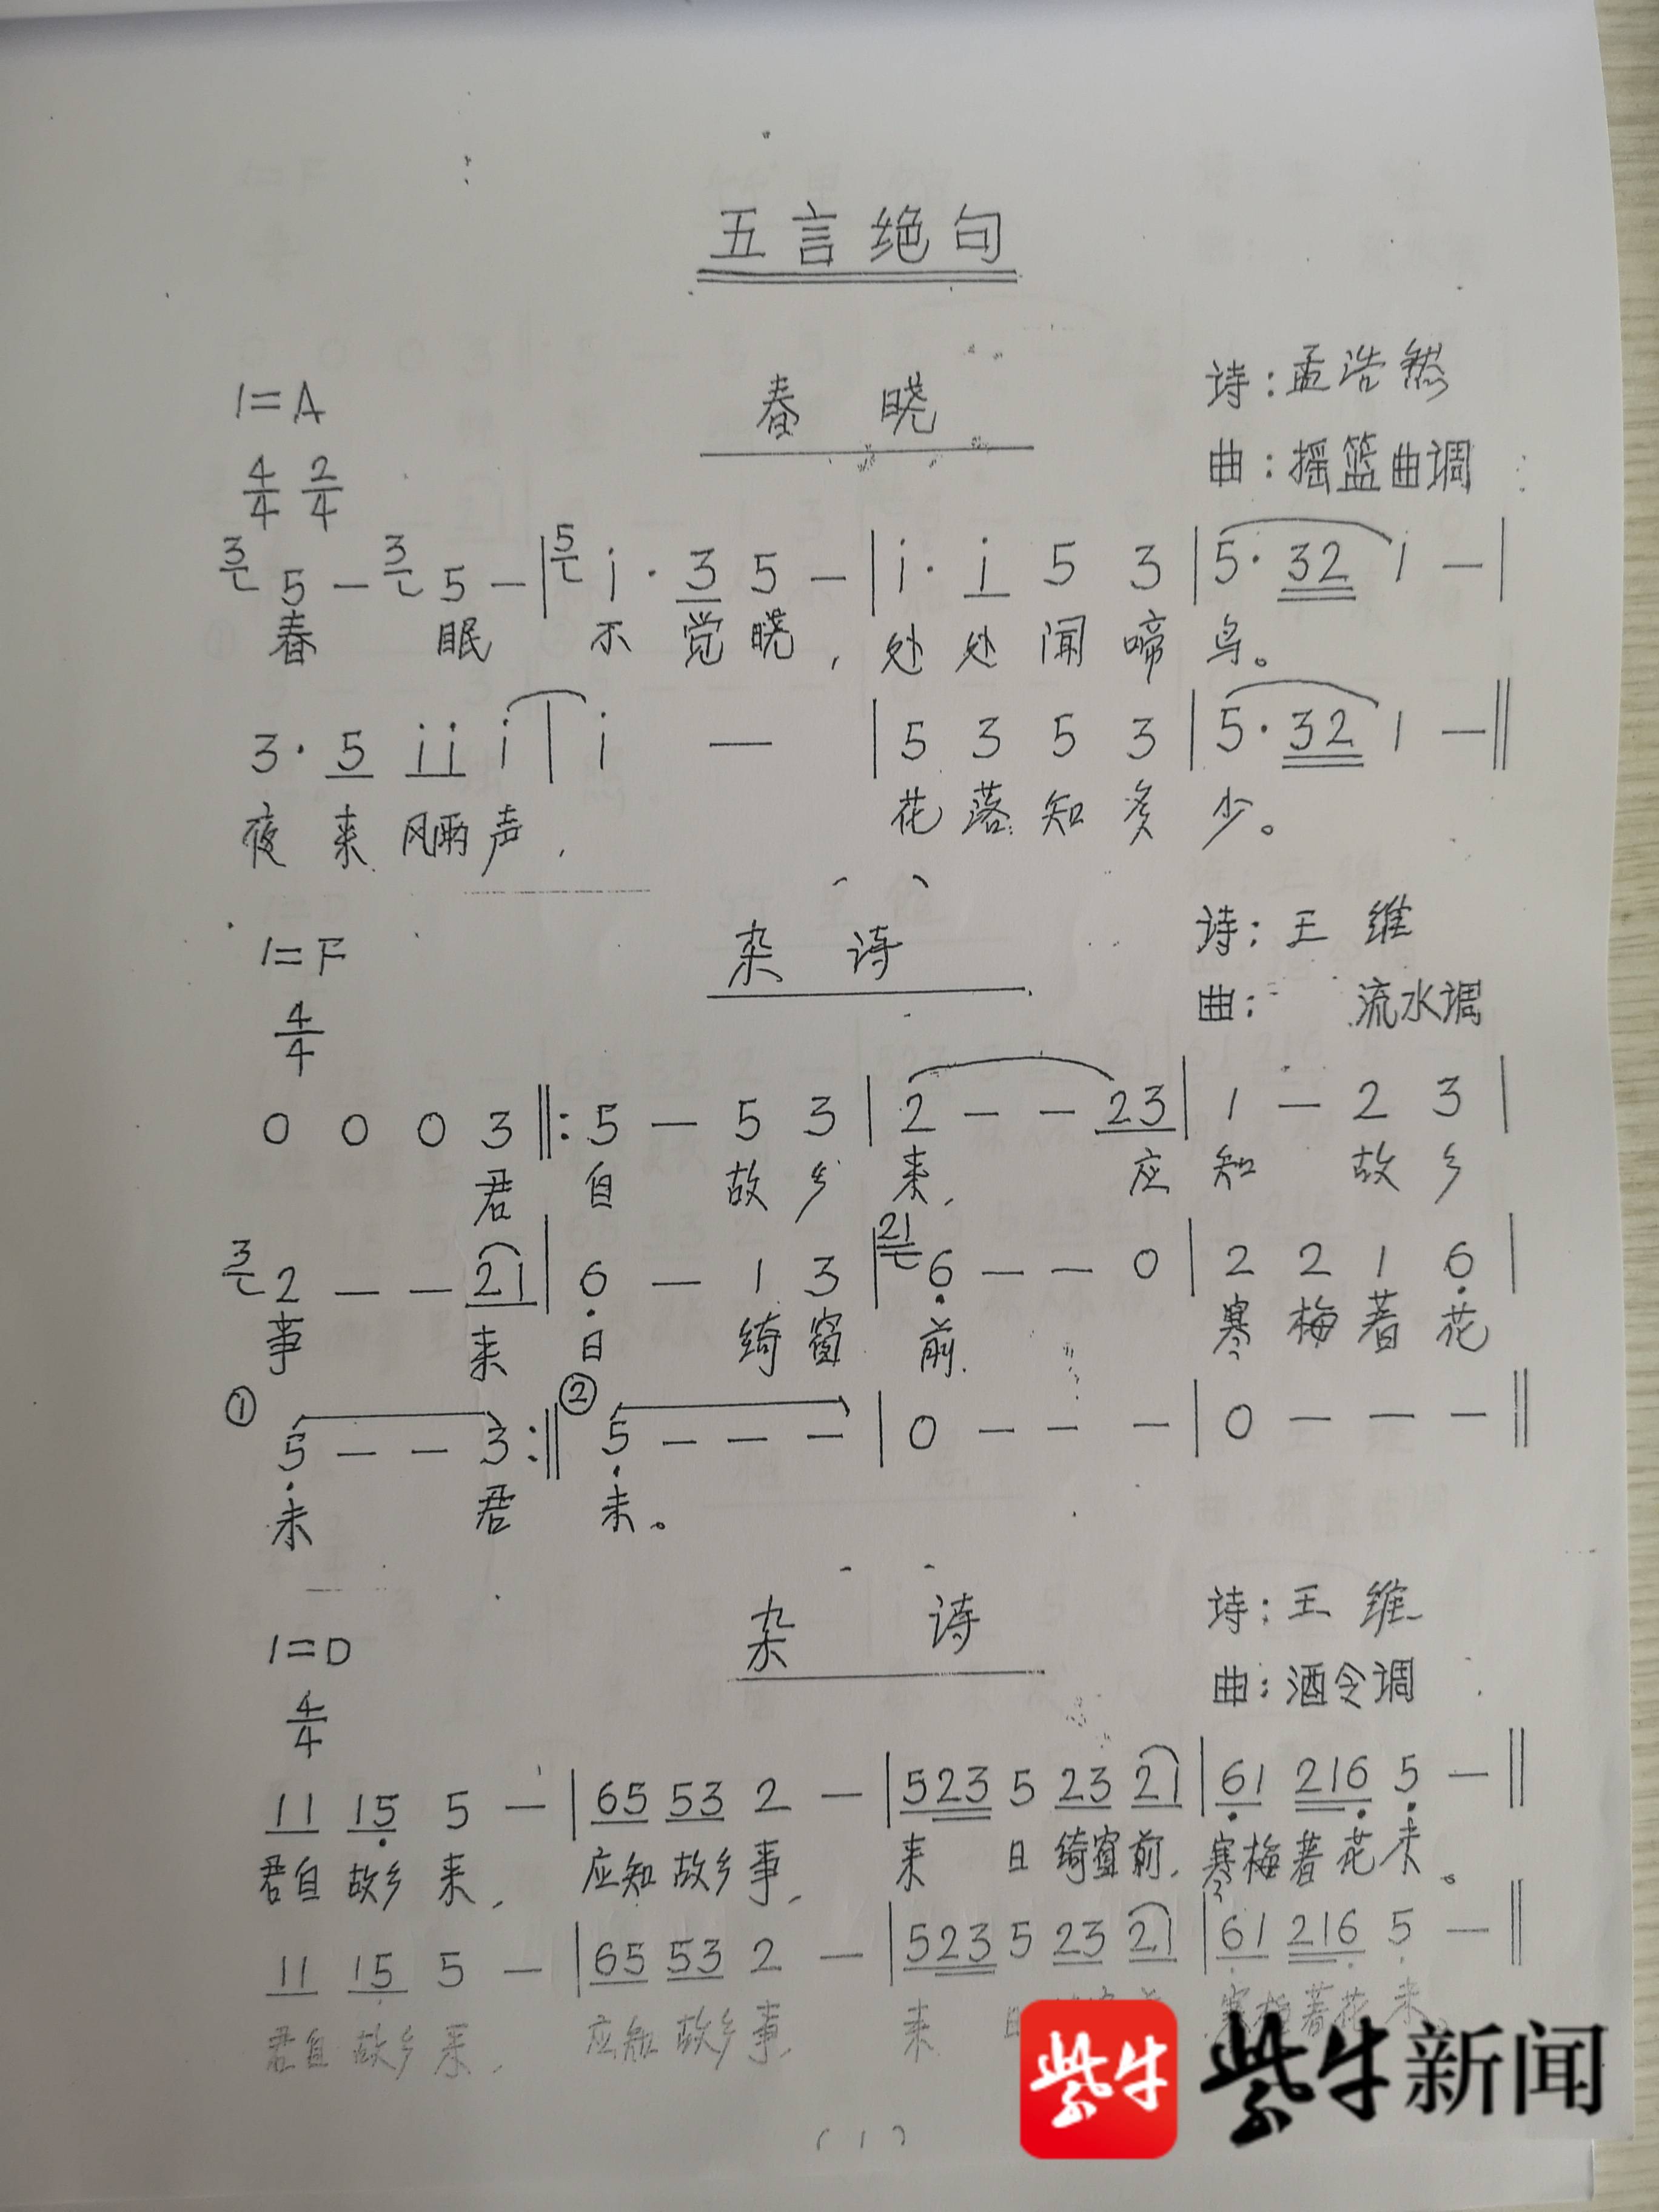 五言绝句
1=A 春晓 诗:孟浩然
4/4 2/4 曲:摇篮曲调
3 5 — 3 5 — | 5 i · 3 5 — | i · i 5 3 | 5 · 32 1 — |
春 眠 不 觉 晓, 处 处 闻 啼 鸟。
3 · 5 ii i | i — | 5 3 5 3 | 5 · 32 1 — ‖
夜 来 风雨 声, 花 落 知 多 少。
1=F 杂诗 诗:王维
4/4 曲:流水调
0 0 0 3 ‖: 5 — 5 3 | 2 — — 23 | 1 — 2 3 |
君 自 故 乡 来, 应 知 故 乡
3 2 — — 21 | 6 — 1 3 | 21 6 — — 0 | 2 2 1 6 |
事 来 日 绮 窗 前. 寒 梅 著 花
① 5 — — 3 :‖ ② 5 — — — | 0 — — — | 0 — — — ‖
未 君 未。
1=D 杂诗 诗:王维
4/4 曲:酒令调
11 15 5 — | 65 53 2 — | 523 5 23 21 | 61 216 5 — ‖
君自 故乡 来, 应知 故乡 事, 来 日 绮窗 前, 寒梅 著花 未。
11 15 5 — | 65 53 2 — | 523 5 23 21 | 61 216 5 — ‖
君自 故乡 来, 应知 故乡 事, 来 日 寒梅 著花 未。
(1)
紫牛 紫牛新闻